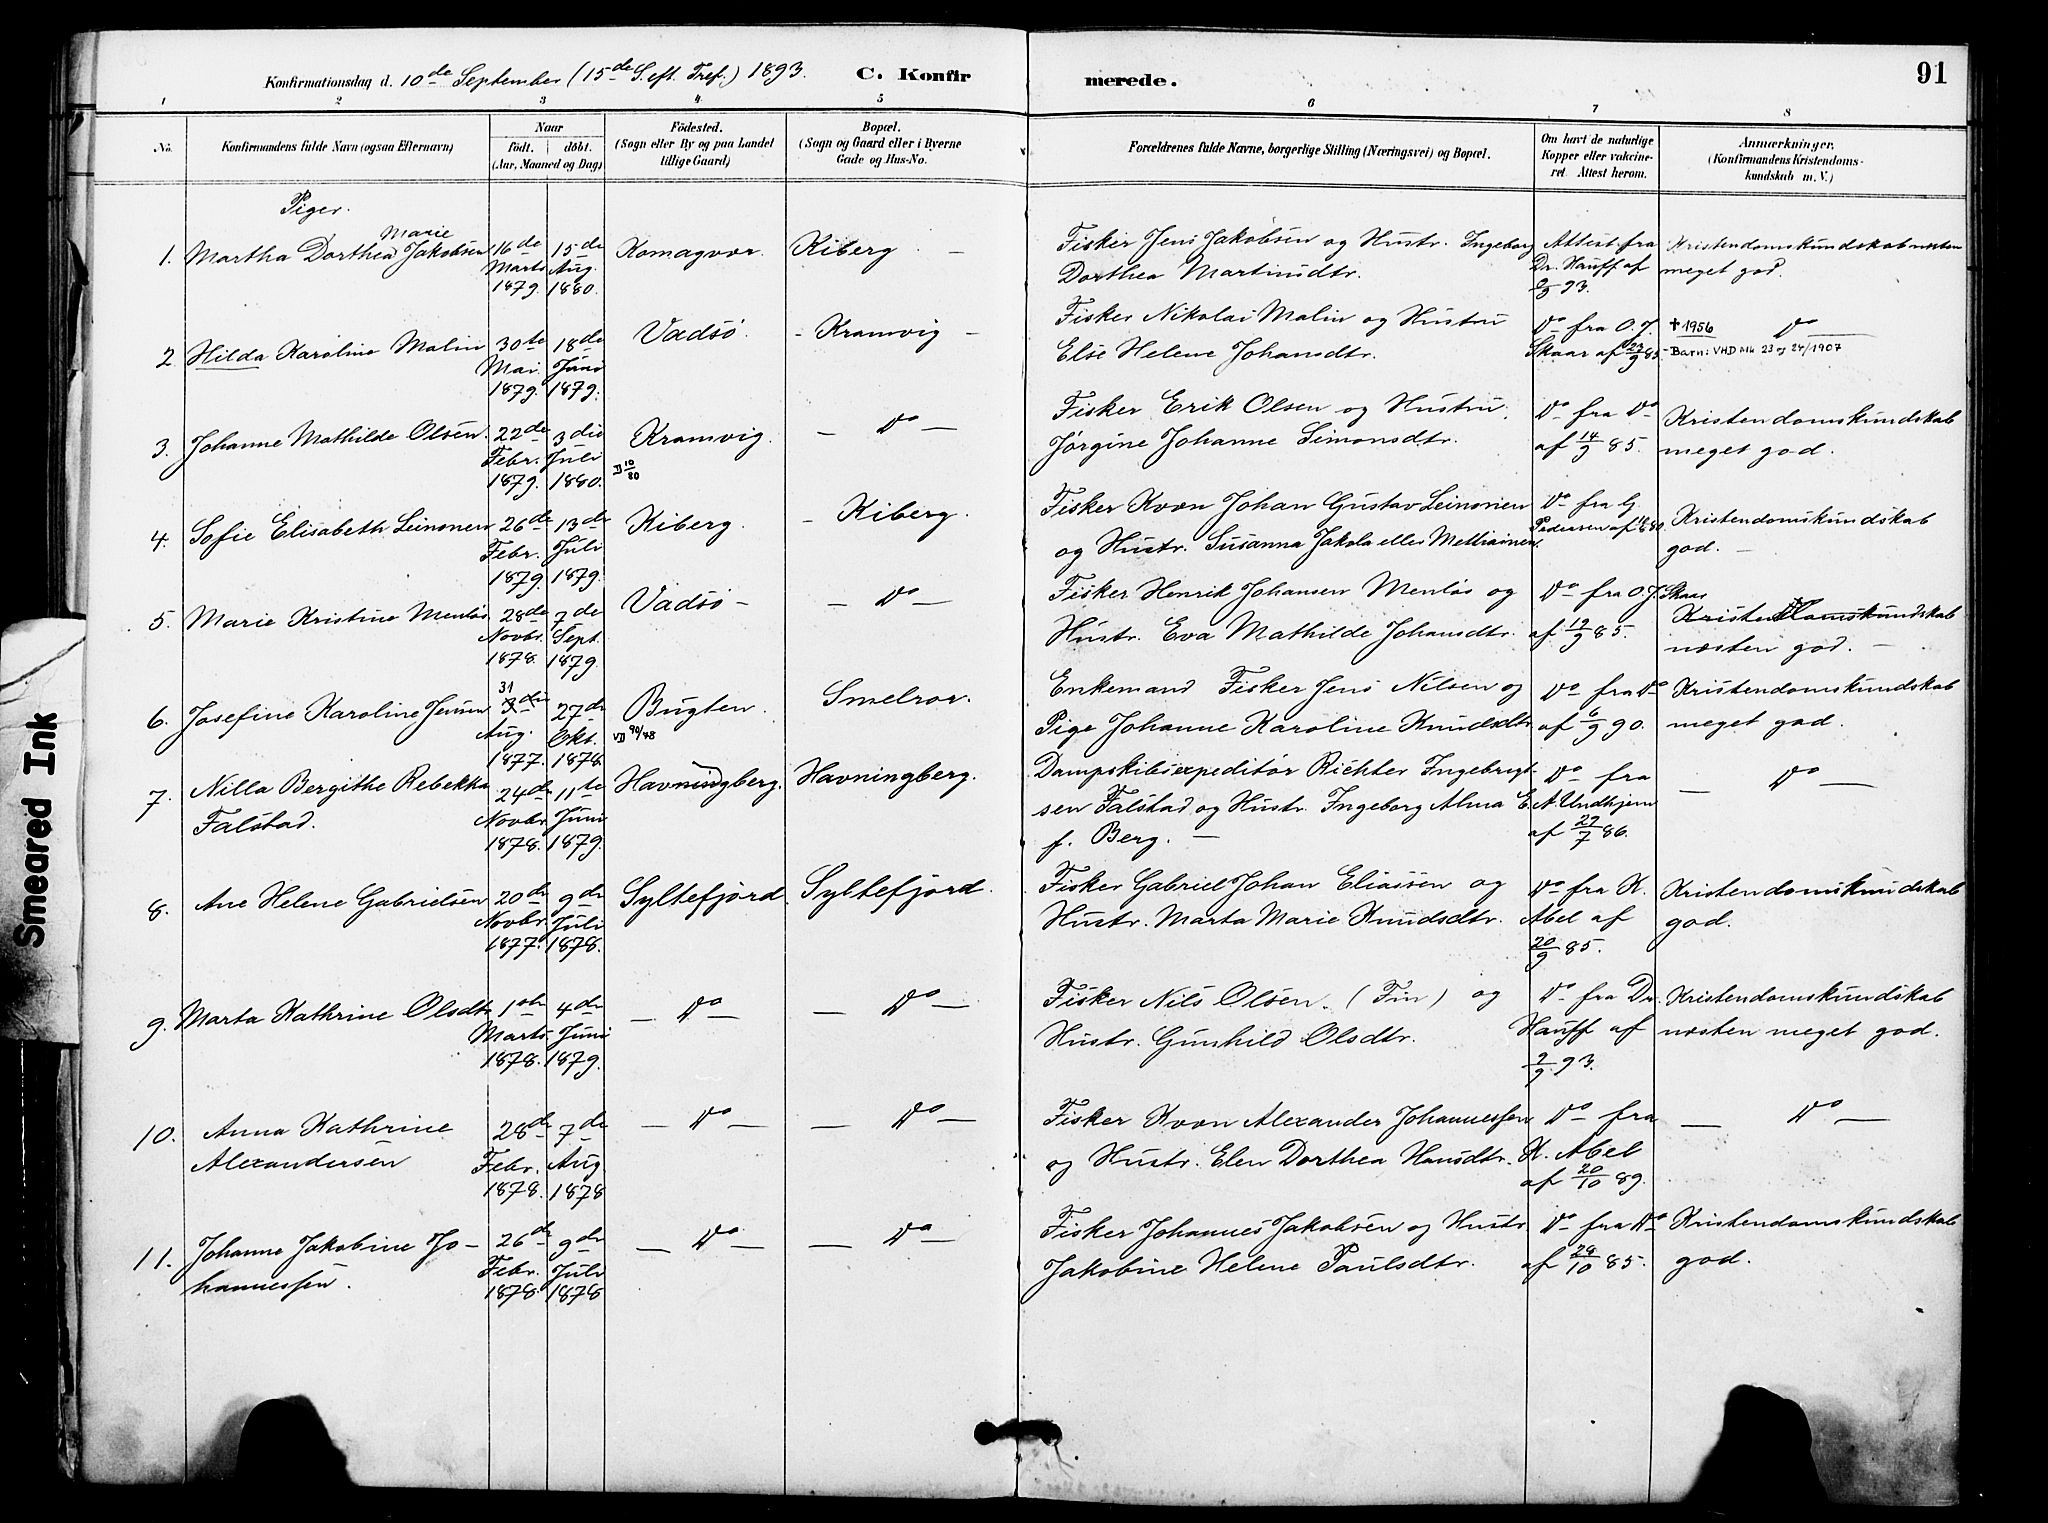 Konfirmationsdag d. 10de September (15de S. eft. Tref.) 1893. C. Konfirmerede. 91
1 2 3 4 5 6 7 8
No. Konfirmandens fulde Navn (ogsaa Efternavn) Naar födt. döbt. (Aar, Maaned og Dag) Födested. (Sogn eller By og paa Landet tillige Gaard) Bopæl. (Sogn og Gaard eller i Byerne Gade og Hus-No. Forældrenes fulde Navne, borgerlige Stilling (Næringsvei) og Bopæl. Om havt de naturlige Kopper eller vakcineret. Attest herom. Anmærkninger. (Konfirmandens Kristendomskundskab m. V.)
Piger.
Marie
1. Martha Dorthea Jakobsen 16de Marts 1879. 15de Aug. 1880. Komagvær. Kiberg –
Fisker Jens Jakobsen og Hustr. Ingeborg
Dorthea Martinsdtr.
Attest fra Dr. Hauff af 93.
Kristendomskundskab næsten
meget god.
2 Hilda Karoline Malin 30te Mai 1879. 18de Juni 1879. Vadsö. – Kramvig –
Fisker Nikolai Malin og Hustru
Else Helene Johansdtr.
Do fra O. J. Skaar af 23/9 85.
† 1956 Do
– Barn: VHD Mk 23 og 24/1907
3. Johanne Mathilde Olsen. 22de Febr. 1879. 3die Juli 1880. Kramvig. D 10/80 – Do –
Fisker Erik Olsen og Hustru
Jørgine Johanne Simonsdtr.
Do fra Do af 14/9 85.
Kristendomskundskab
meget god.
4. Sofie Elisabeth Leinonen 26de Febr. 1879. 13de Juli 1879. Kiberg. – Kiberg.
Fisker Kvæn Johan Gustav Leinonen
og Hustr. Susanna Jakola eller Mettiainen.
Do fra G. Pedersen af 1880.
Kristendomskundskab
god. –
5. Marie Kristine Menlös 28de Novbr. 1878. 7de Sept. 1879. Vadsö – – Do –
Fisker Henrik Johansen Menlös og
Hustr. Eva Mathilde Johansdtr.
Do fra O. J. Skaar af 19/9 85.
Kristendomskundskab
næsten god. –
6. Josefine Karoline Jensen 31 3de Aug. 1877. 27de Okt. 1878. Bugten. VD 90/48 Smelror.
Enkemand Fisker Jens Nilsen og
Pige Johanne Karoline Knudsdtr.
Do fra Do af 6/9 90.
Kristendomskundskab
meget god.
7. Nilla Bergithe Rebekka
Falstad. 24de Novbr. 1878. 11te Juni 1879. Havningberg. Havningberg.
Dampskibsexpeditör Richter Ingebrigt-
sen Falstad og Hustr. Ingeborg Alma E.
f. Berg. –
Do fra A. Undhjem af 29/7 86.
– Do –
8. Ane Helene Gabrielsen 20de Novbr. 1877. 9de Juli 1878. Syltefjord. Syltefjord.
Fisker Gabriel Johan Eliassen og
Hustr. Marta Marie Knudsdtr.
Do fra K. Abel af 20/9 85.
Kristendomskundskab
god.
9. Marta Kathrine Olsdtr. 1ste Marts 1878. 4de Juni 1879. – Do – – Do –
Fisker Nils Olsen. (Fin) og
Hustr. Gunhild Olsdtr.
Do fra Dr. Hauff af 9/9 93.
Kristendomskundskab
næsten meget god.
10. Anna Kathrine
Alexandersen 28de Febr. 1878. 7de Aug 1878 – Do – – Do –
Fisker Kvæn Alexander Johannessen
og Hustr. Elen Dorthea Hansdtr.
Do fra K. Abel af 20/10 89.
– Do –
11. Johanne Jakobine Jo-
hannessen. 26de Febr. 1878. 9de Juli 1878 – Do – – Do –
Fisker Johannes Jakobsen og Hustr.
Jakobine Helene Paulsdtr.
Do fra Do af 28/10 85.
Kristendomskundskab
god.
Smeared Ink